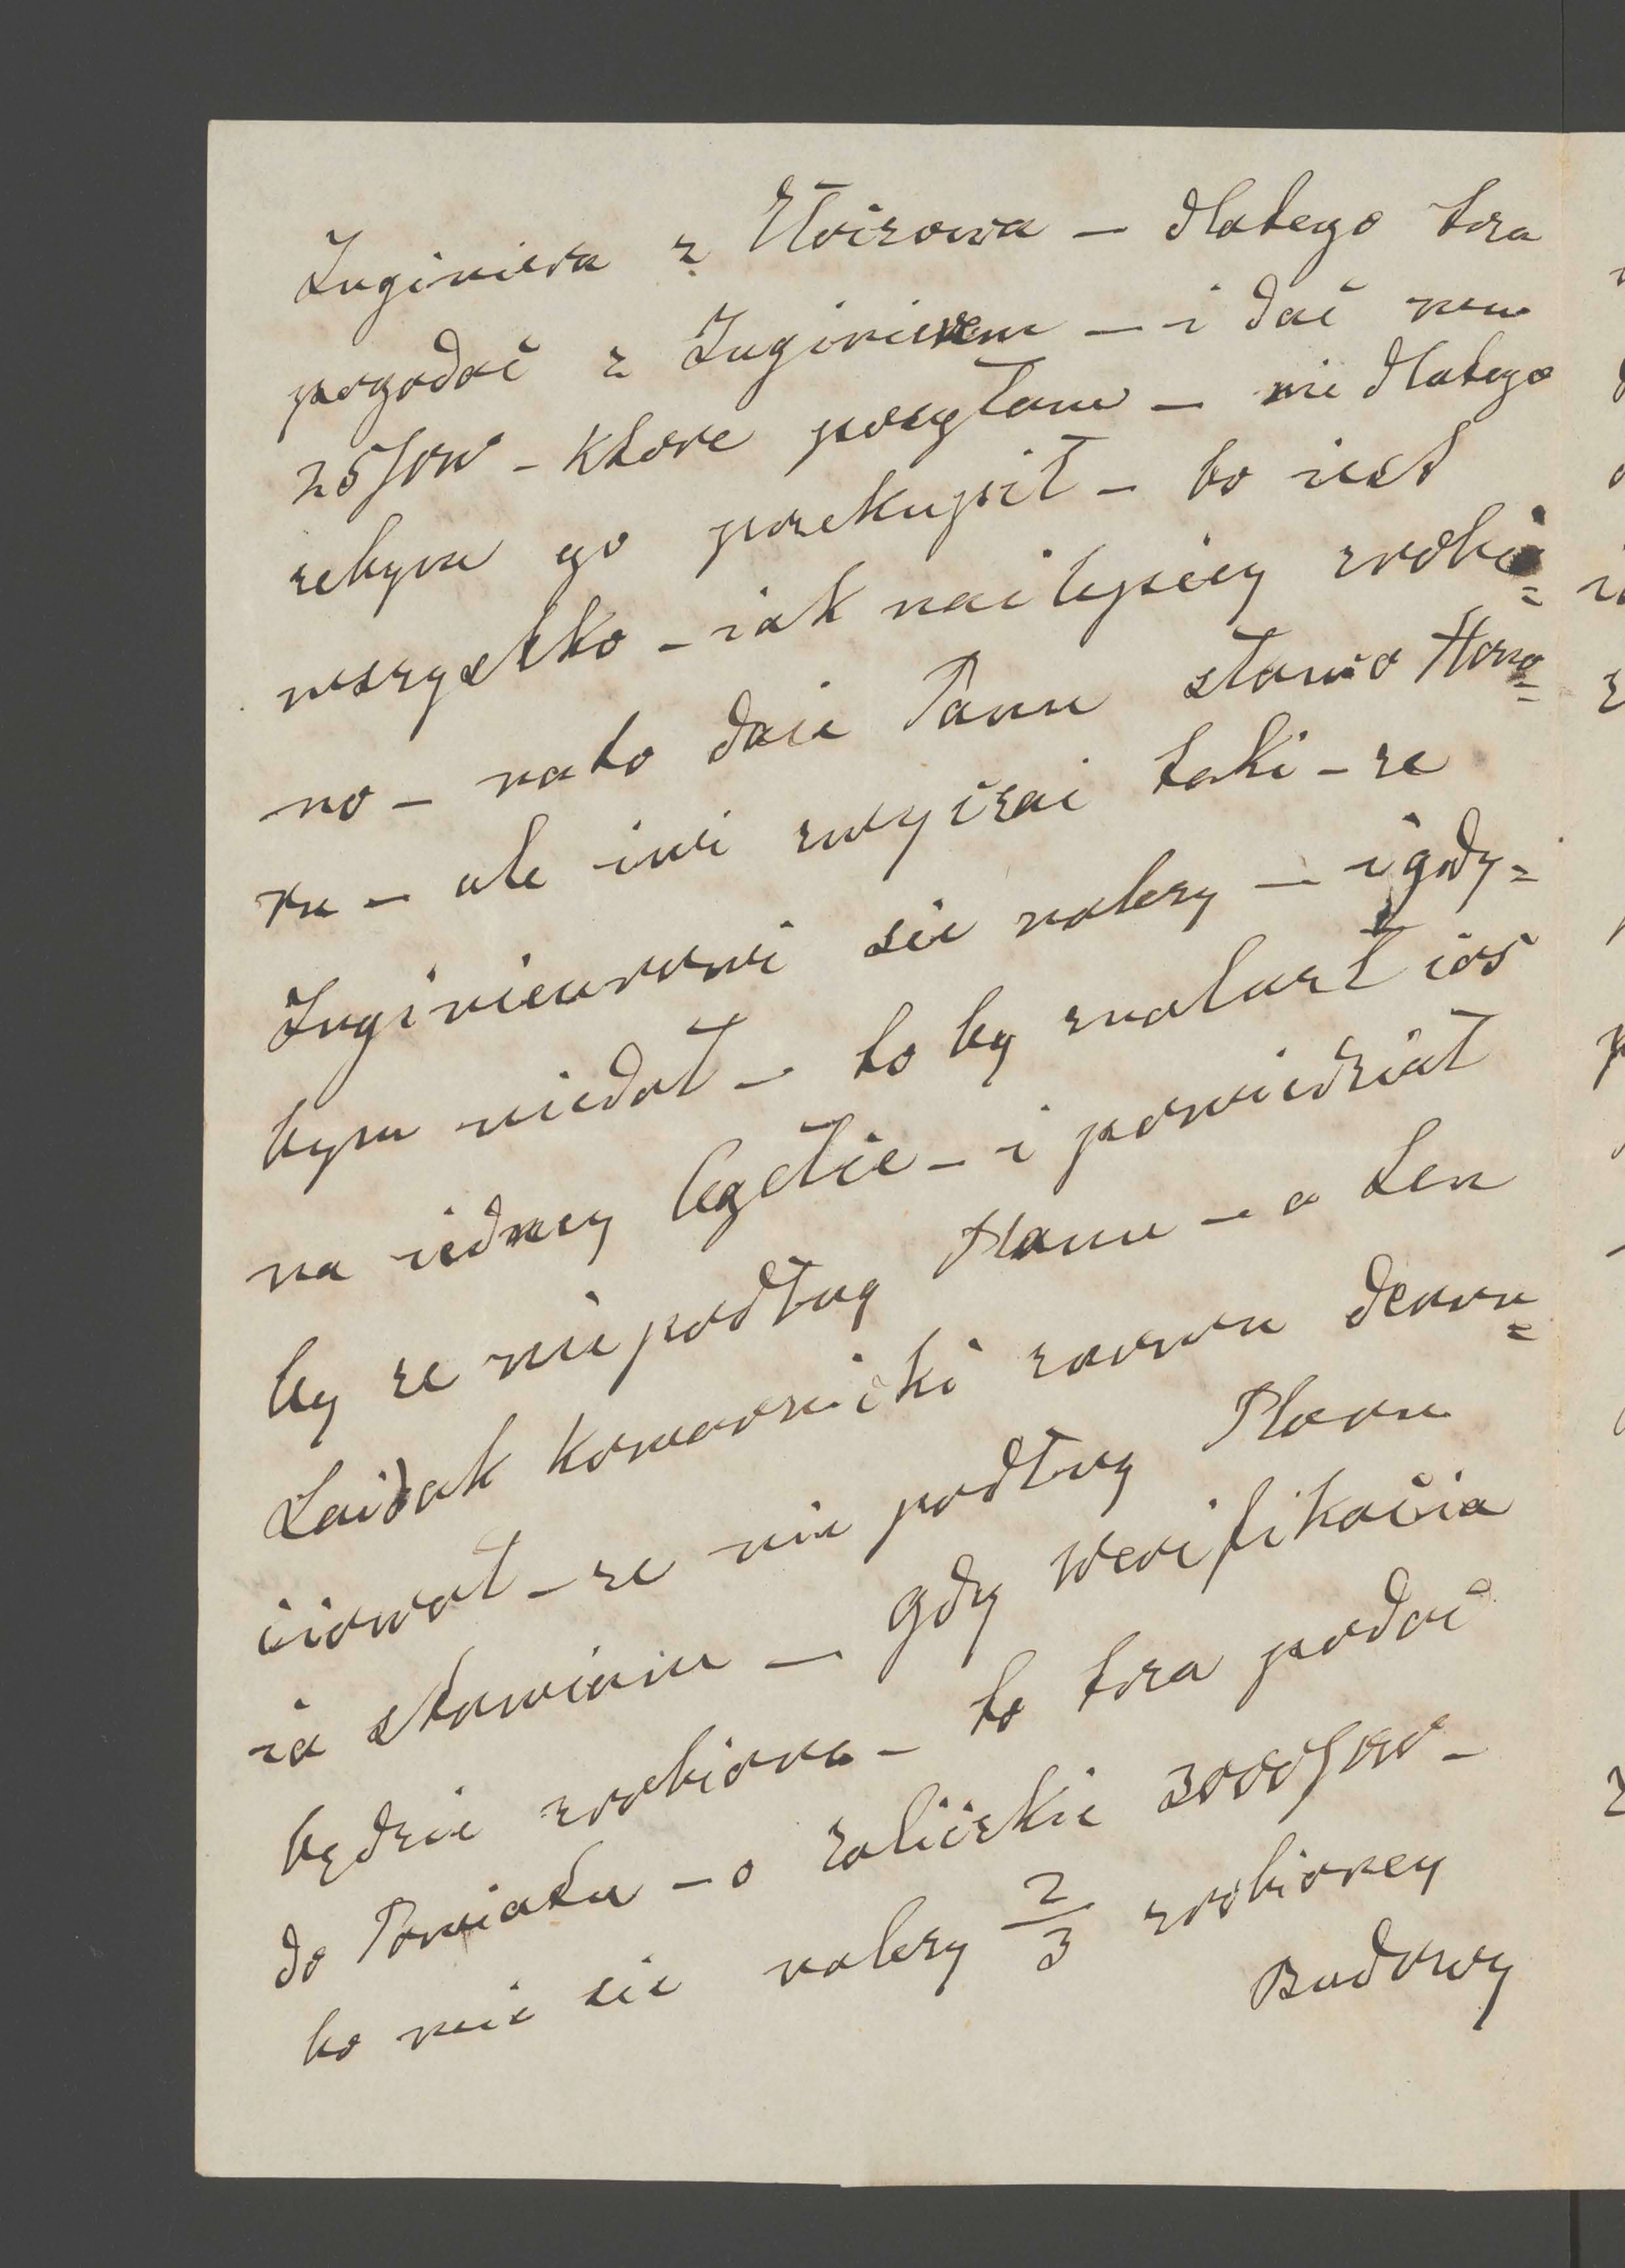 Inginiera z Złoczowa – dlatego tra
pogodać z Inginierem – i dać mu
25 – ktore posyłam – nie dlatego
zebym go przekupił – bo iest
wszystko – iak nai lepiey zrobio=
no – na to daie Panu słowo Hono=
ru – ale inri zwyczai taki – ze
Inginieurowi sie nalezy – i gdy=
bym niedał – to by znalazł coś
na iedney Cegełcie – i powiedział
by ze nie podług Planu – a Ten
Laidak Komarnicki znowu denun=
ciował – ze nie podług Planu
ia stawiaiu – gdy Werifikacia
będzie zrobiona – to tra podać
do Powiatu – o zaliczkie 3000
bo mie sie nalezy 2/3 zrobioney
Budowy